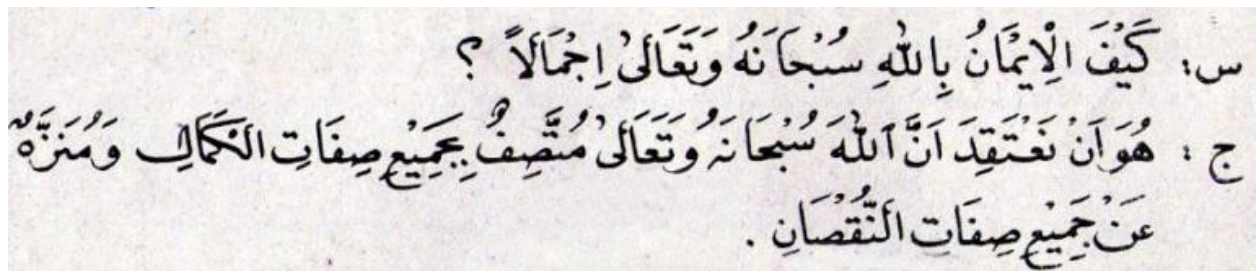 س: كَيْفَ الْاِيْمَانُ بِاللّٰهِ سُبْحَانَهُ وَتَعَالَىٰ اِجْمَالاً ؟
ج : هُوَ اَنْ نَعْتَقِدَ اَنَّ اللّٰهَ سُبْحَانَهُ وَتَعَالَىٰ مُتَّصِفٌ بِجَمِيْعِ صِفَاتِ الْكَمَالِ وَمُنَزَّهٌ
عَنْ جَمِيْعِ صِفَاتِ النُّقْصَانِ .